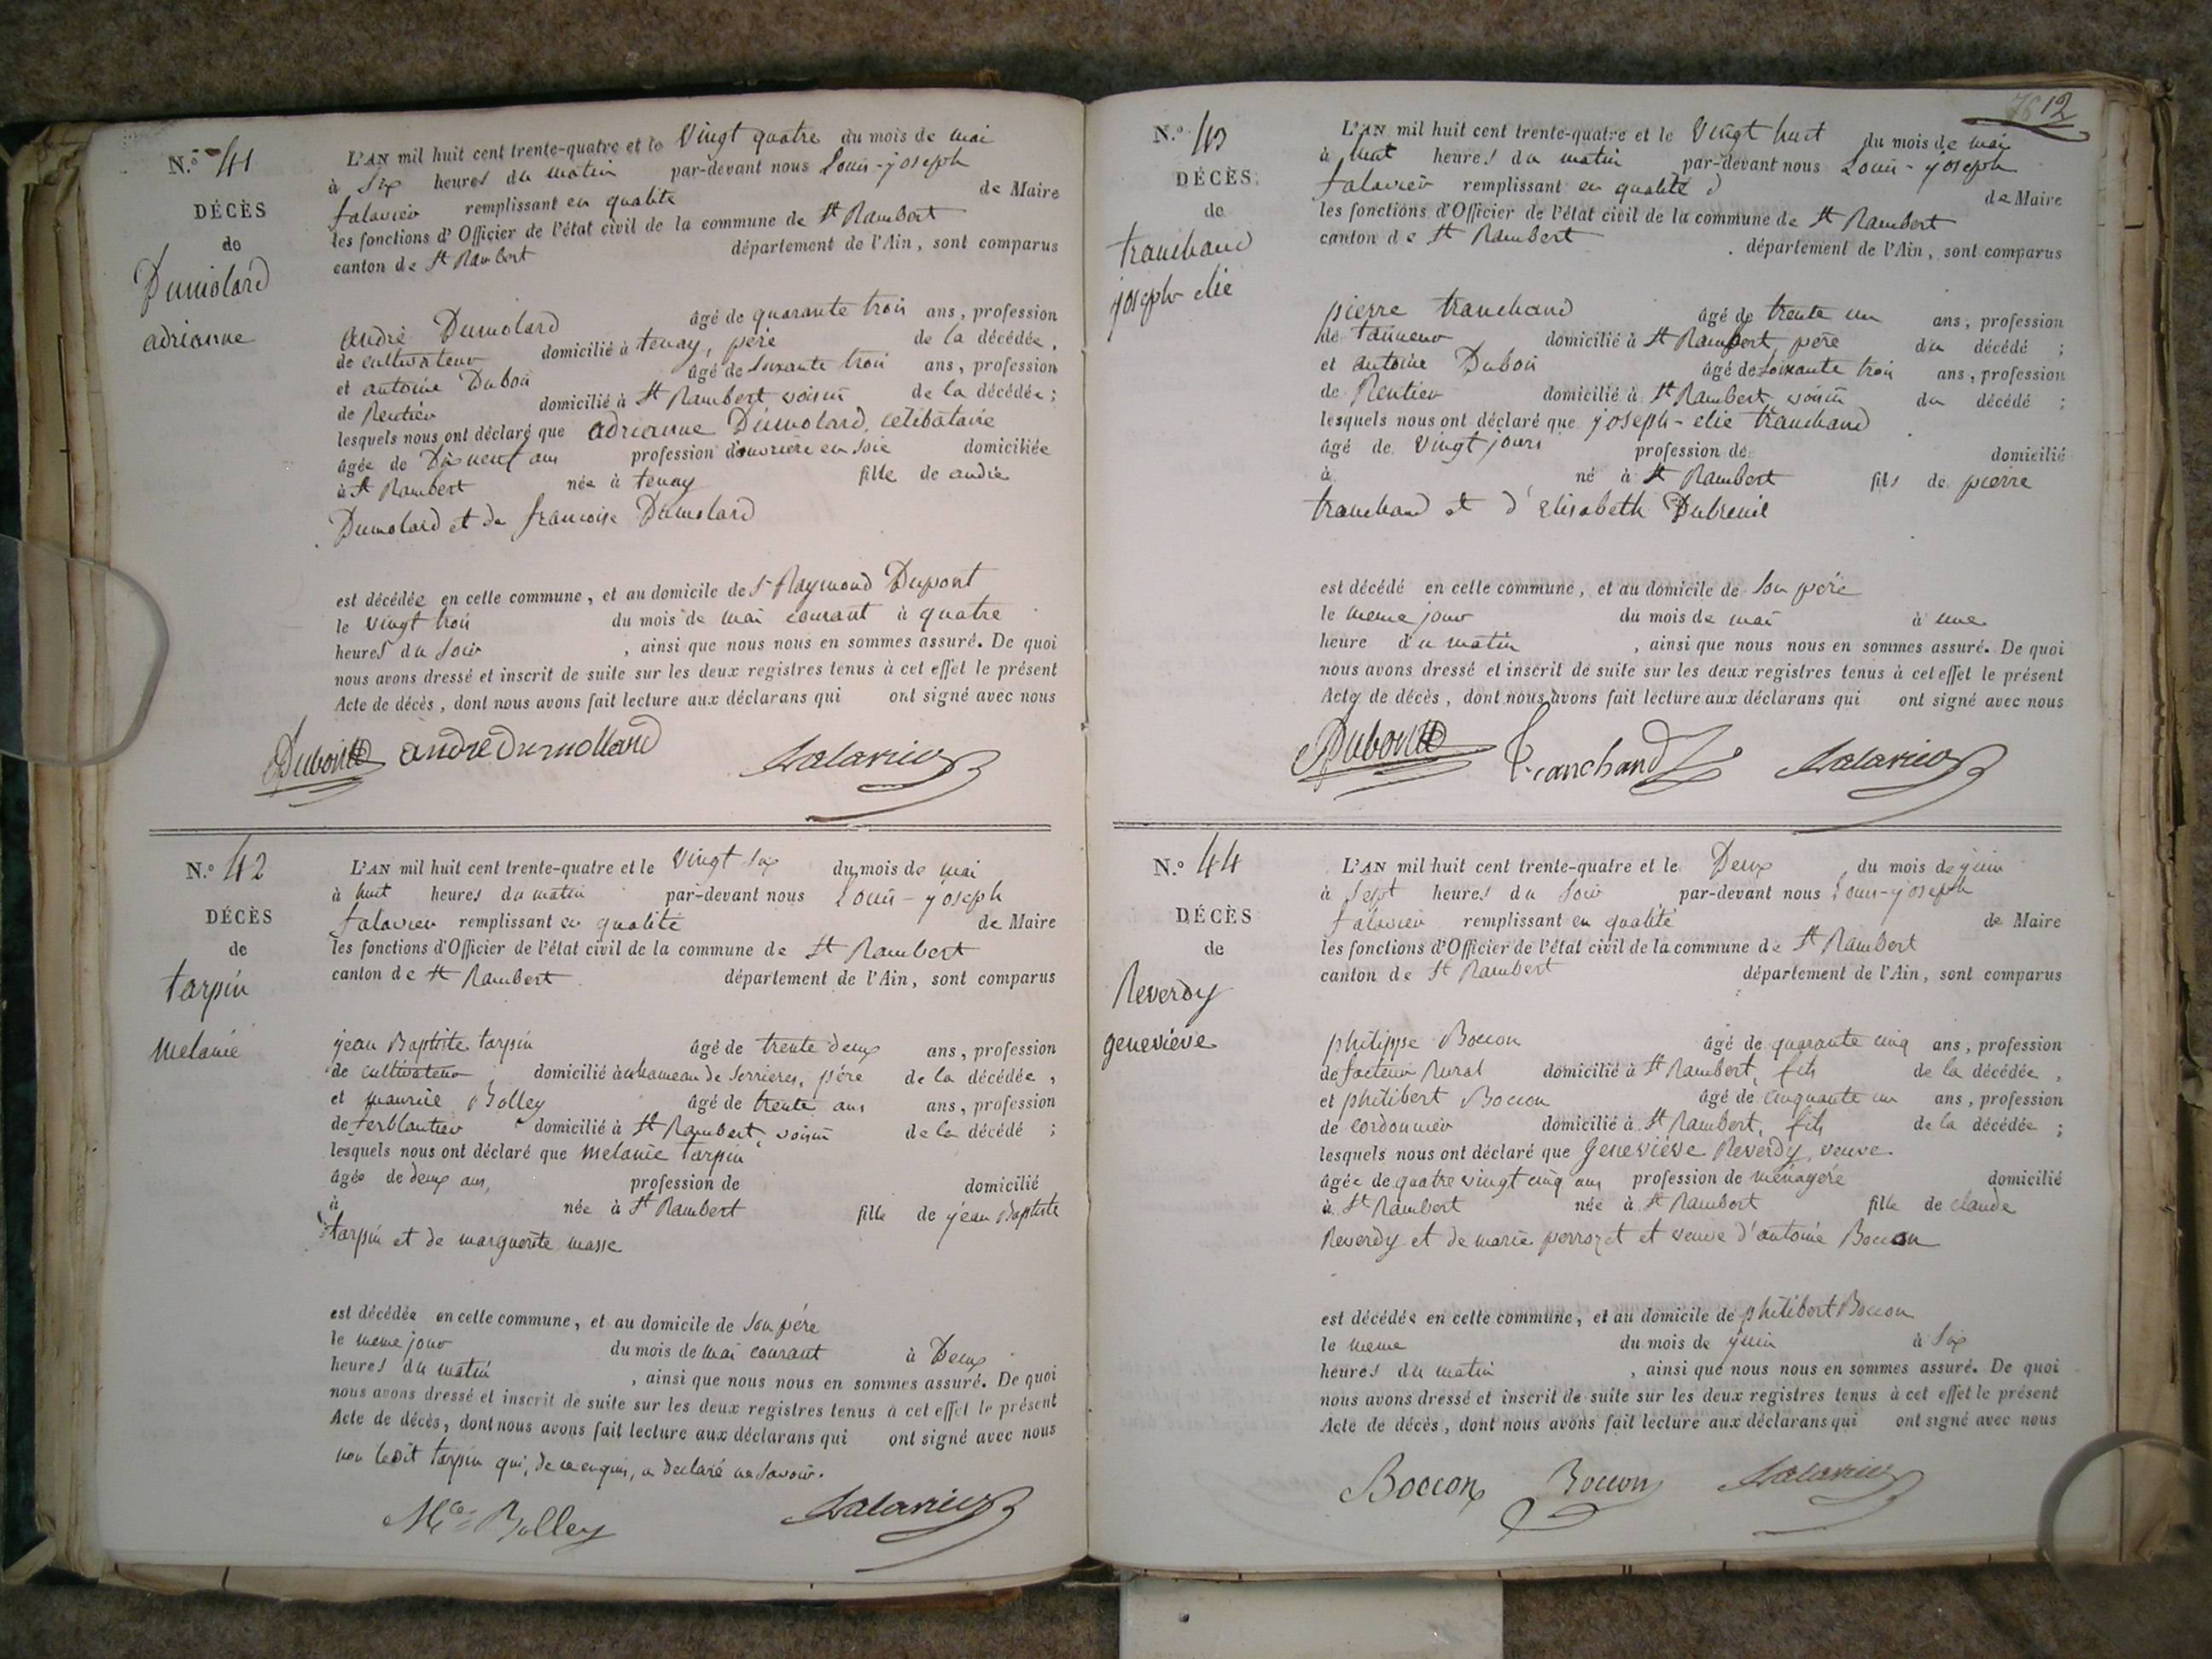 N.º 41
DÉCÈS
de
Dumolard
adrianne
L'AN mil huit cent trente-quatre et le Vingt quatre du mois de mai
à Six heures du matin par-devant nous Louis-joseph
falavier remplissant en qualité de Maire
les fonctions d'Officier de l'état civil de la commune de St Rambert
canton de St Rambert département de l'Ain, sont comparus
andré Dumolard âgé de quarante trois ans, profession
de cultivateur domicilié à tenay, père de la décédée,
et antoine Dubois âgé de soixante trois ans, profession
de Rentier domicilié à St Rambert voisin de la décédée;
lesquels nous ont déclaré que adrianne Dumolard, celibataire
âgée de Dix neuf ans profession d'ouvrière en soie domiciliée
à St Rambert née à tenay fille de andré
Dumolard et de francoise Dumolard
est décédée en cette commune, et au domicile de Sr Raymond Dupont
le vingt trois du mois de mai courant à quatre
heures du soir, ainsi que nous nous en sommes assuré. De quoi
nous avons dressé et inscrit de suite sur les deux registres tenus à cet effet le présent
Acte de décès, dont nous avons fait lecture aux déclarans qui ont signé avec nous
Dubois andré dumollard falavier
N.º 42
DÉCÈS
de
tarpin
melanie
L'AN mil huit cent trente-quatre et le Vingt six du mois de mai
à huit heures du matin par-devant nous Louis-joseph
falavier remplissant en qualité de Maire
les fonctions d'Officier de l'état civil de la commune de St Rambert
canton de St Rambert département de l'Ain, sont comparus
jean Baptiste tarpin âgé de trente deux ans, profession
de cultivateur domicilié au hameau de Serrieres, père de la décédée,
et maurice Bolley âgé de trente ans ans, profession
de ferblantier domicilié à St Rambert, voisin de la décédé;
lesquels nous ont déclaré que melanie tarpin
âgée de deux ans, profession de domicilié
à née à St Rambert fille de jean Baptiste
tarpin et de marguerite masse
est décédée en cette commune, et au domicile de son père
le meme jour du mois de mai courant à Deux
heures du matin, ainsi que nous nous en sommes assuré. De quoi
nous avons dressé et inscrit de suite sur les deux registres tenus à cet effet le présent
Acte de décès, dont nous avons fait lecture aux déclarans qui ont signé avec nous
non ledit tarpin qui, de ce enquis, a declaré ne savoir.
Mce Bolley falavier
12
N.º 43
DÉCÈS
de
tranchand
joseph elie
L'AN mil huit cent trente-quatre et le Vingt huit du mois de mai
à huit heures du matin par-devant nous Louis-joseph
falavier remplissant en qualité de Maire
les fonctions d'Officier de l'état civil de la commune de St Rambert
canton de St Rambert département de l'Ain, sont comparus
pierre tranchand âgé de trente un ans, profession
de tanneur domicilié à St Rambert père du décédé;
et antoine Dubois âgé de soixante trois ans, profession
de Rentier domicilié à St Rambert, voisin du décédé;
lesquels nous ont déclaré que joseph-elie tranchand
âgé de vingt jours profession de domicilié
à né à St Rambert fils de pierre
tranchand et d'Elisabeth Dubreuil
est décédé en cette commune, et au domicile de son père
le meme jour du mois de mai à une
heure du matin, ainsi que nous nous en sommes assuré. De quoi
nous avons dressé et inscrit de suite sur les deux registres tenus à cet effet le présent
Acte de décès, dont nous avons fait lecture aux déclarans qui ont signé avec nous
Dubois Tranchand falavier
N.º 44
DÉCÈS
de
Reverdy
geneviève
L'AN mil huit cent trente-quatre et le Deux du mois de juin
à Sept heures du soir par-devant nous Louis-joseph
falavier remplissant en qualité de Maire
les fonctions d'Officier de l'état civil de la commune de St Rambert
canton de St Rambert département de l'Ain, sont comparus
philippe Boccon âgé de quarante cinq ans, profession
de facteur Rural domicilié à St Rambert, fils de la décédée,
et philibert Boccon âgé de cinquante un ans, profession
de cordonnier domicilié à St Rambert, fils de la décédée;
lesquels nous ont déclaré que geneviève Reverdy, veuve
âgée de quatre vingt cinq ans profession de ménagère domicilié
à St Rambert née à St Rambert fille de claude
Reverdy et de marie perrozet et veuve d'antoine Boccon
est décédée en cette commune, et au domicile de philibert Boccon
le meme du mois de juin à six
heures du matin, ainsi que nous nous en sommes assuré. De quoi
nous avons dressé et inscrit de suite sur les deux registres tenus à cet effet le présent
Acte de décès, dont nous avons fait lecture aux déclarans qui ont signé avec nous
Boccon Boccon falavier